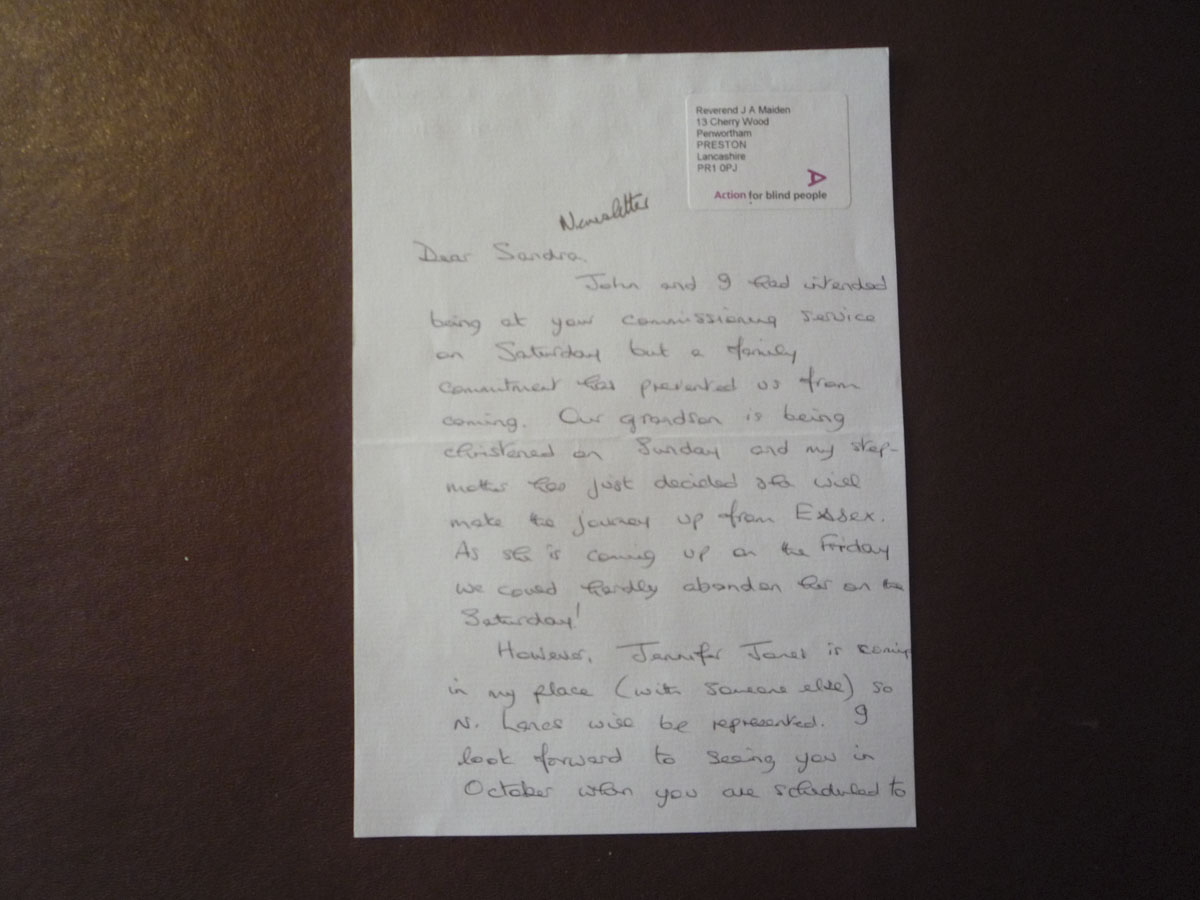 Reverend J A Maiden
13 Cherry Wood
Penwortham
PRESTON
Lancashire
PR1 0PJ
Action for blind people
Newsletter
Dear Sandra,
John and I had intended
being at your commissioning service
on Saturday but a family
commitment has prevented us from
coming. Our grandson is being
christened on Sunday and my step-
mother has just decided she will
make the journey up from Essex.
As she is coming up on the Friday
we could hardly abandon her on the
Saturday!
However, Jennifer Jones is coming
in my place (with someone else) so
N. Lancs will be represented. I
look forward to seeing you in
October when you are scheduled to